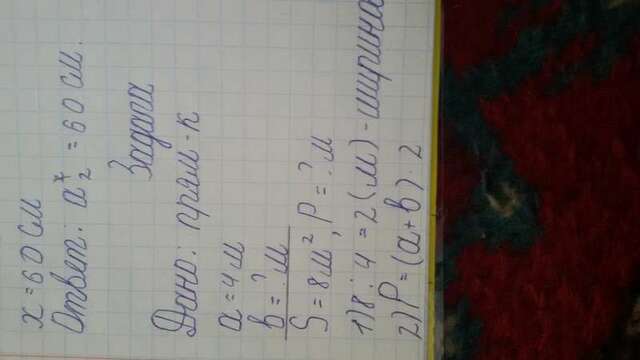 x = 60 см
Ответ: a₂ˣ = 60 см.
Задача
Дано: прям-к
a = 4 м
b = ? м
S = 8 м², P = ? м
1) 8 : 4 = 2 (м) - ширина
2) P = (a + b) · 2